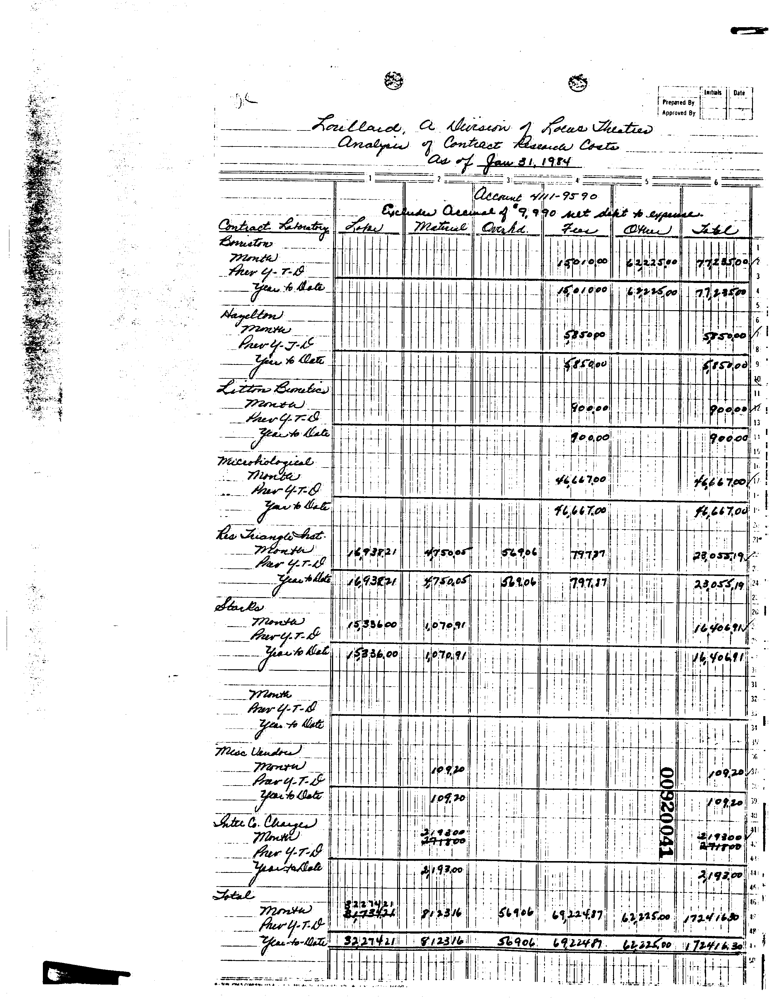 Initials Date
Prepared By
Approved By
Lorillard, A Division of Loews Theatres
Analysis of Contract Research Costs
As of Jan 31, 1984
1 2 3 4 5 6
Account 4111-9590
Excludes Accrual of $9,990 net debt to expense
Contract Laboratory Labor Material Overhd. Fees Other Total
Borriston
Month 15,010.00 62,225.00 77,235.00
Prev Y-T-D
Year to Date 15,010.00 62,225.00 77,235.00
Hazelton
Month 5,850.00 5,850.00
Prev Y-T-D
Year to Date 5,850.00 5,850.00
Litton Bionetics
Month 900.00 900.00
Prev Y-T-D
Year to Date 900.00 900.00
Microbiological
Month 46,667.00 46,667.00
Prev Y-T-D
Year to Date 46,667.00 46,667.00
Res Triangle Inst.
Month 16,938.21 4,750.05 569.06 797.87 23,055.19
Prev Y-T-D
Year to Date 16,938.21 4,750.05 569.06 797.87 23,055.19
Starks
Month 15,336.00 1,070.91 16,406.91
Prev Y-T-D
Year to Date 15,336.00 1,070.91 16,406.91
Month
Prev Y-T-D
Year to Date
Misc Vendors
Month 109.20 109.20
Prev Y-T-D
Year to Date 109.20 109.20
Inter Co. Charges
Month 2,193.00 2,193.00
Prev Y-T-D
Year to Date 2,193.00 2,193.00
Total
Month 32,274.21 8,123.16 569.06 69,224.87 62,225.00 172,416.30
Prev Y-T-D
Year-to-Date 32,274.21 8,123.16 569.06 69,224.87 62,225.00 172,416.30
00920041